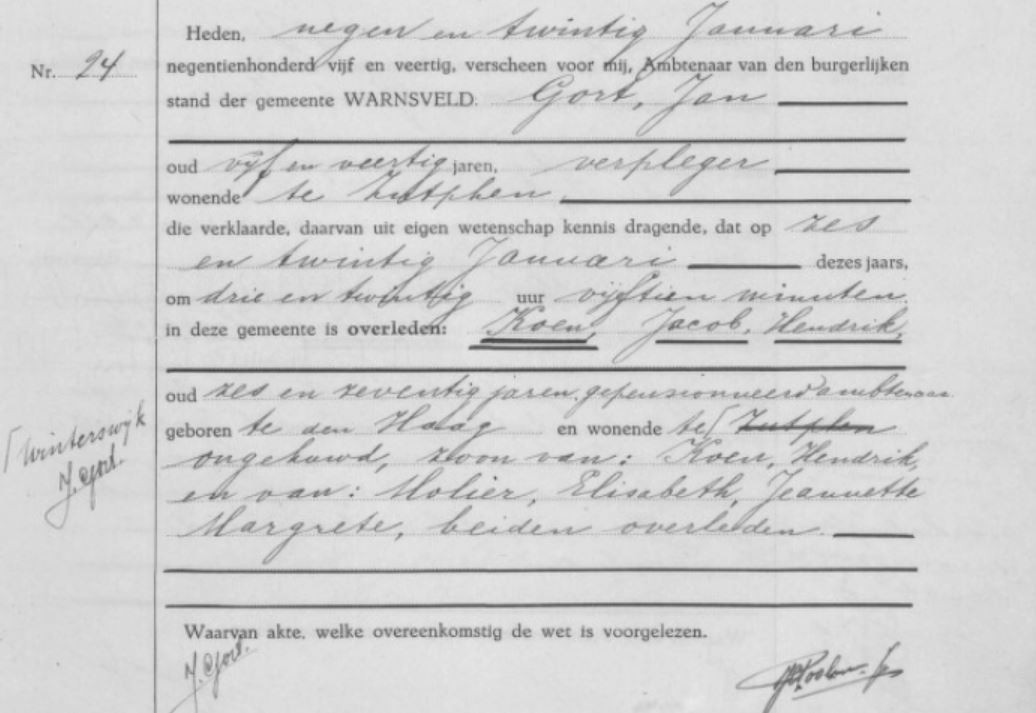 Heden, negen en twintig Januari
Nr. 24
negentienhonderd vijf en veertig, verscheen voor mij, Ambtenaar van den burgerlijken
stand der gemeente WARNSVELD. Gort, Jan
oud vijf en veertig jaren, verpleger
wonende te Zutphen,
die verklaarde, daarvan uit eigen wetenschap kennis dragende, dat op zes
en twintig Januari dezes jaars,
om drie en twintig uur vijftien minuten
in deze gemeente is overleden: Koen, Jacob, Hendrik,
oud zes en zeventig jaren, gepensionneerd ambtenaar
geboren te den Haag en wonende te ⌈ Zutphen
⌈ Winterswijk
J. Gort.
ongehuwd, zoon van: Koen, Hendrik,
en van: Molier, Elisabeth, Jeannette
Margrete, beiden overleden.
Waarvan akte, welke overeenkomstig de wet is voorgelezen.
J. Gort.